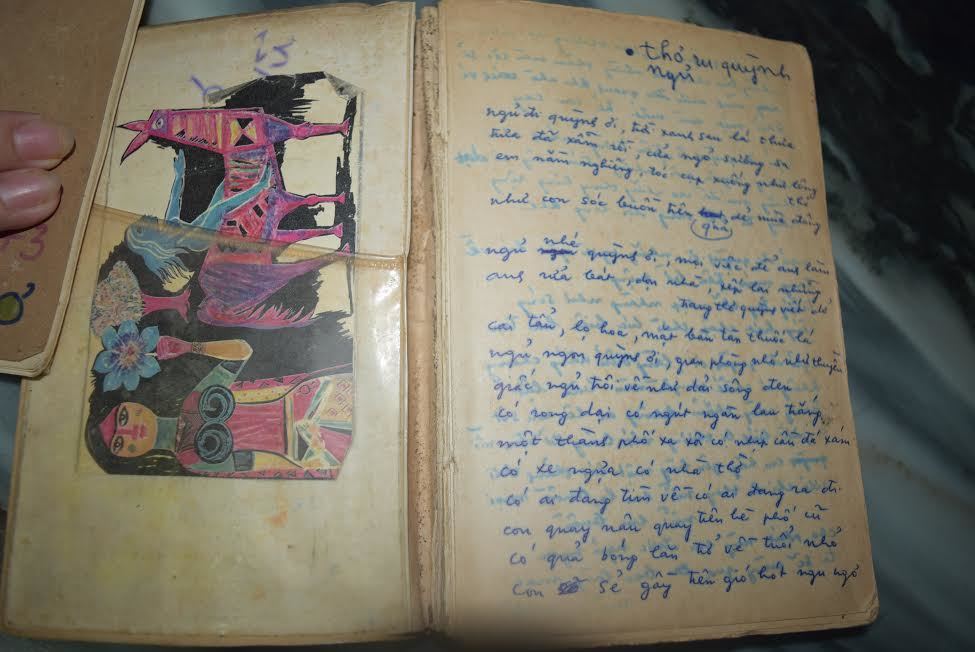 thơ ru quỳnh
ngủ
ngủ đi quỳnh ơi, trời xanh sau lá thưa
trưa đã xẫm rồi, cửa ngõ
em nằm nghiêng, tóc cụp xuống như lông
thỏ
như con sóc buồn trên quả dẻ mùa đông
ngủ nhé quỳnh ơi, mọi việc để anh làm
anh rửa bát, dọn nhà, xếp lại những
trang thơ quỳnh viết dở
cái tẩu, lọ hoa, mặt bàn tàn thuốc lá
ngủ ngon quỳnh ơi, gian phòng nhỏ như thuyền
giấc ngủ trôi về như dải sông đen
có rong dại có ngút ngàn lau trắng
một thành phố xa xôi có nhịp cầu đá xám
có xe ngựa có nhà thờ
có ai đang tìm về có ai đang ra đi
con quay nâu quay trên hè phố cũ
có quả bóng lăn từ về tuổi nhỏ
con sẻ gầy trên gió hót ngu ngơ